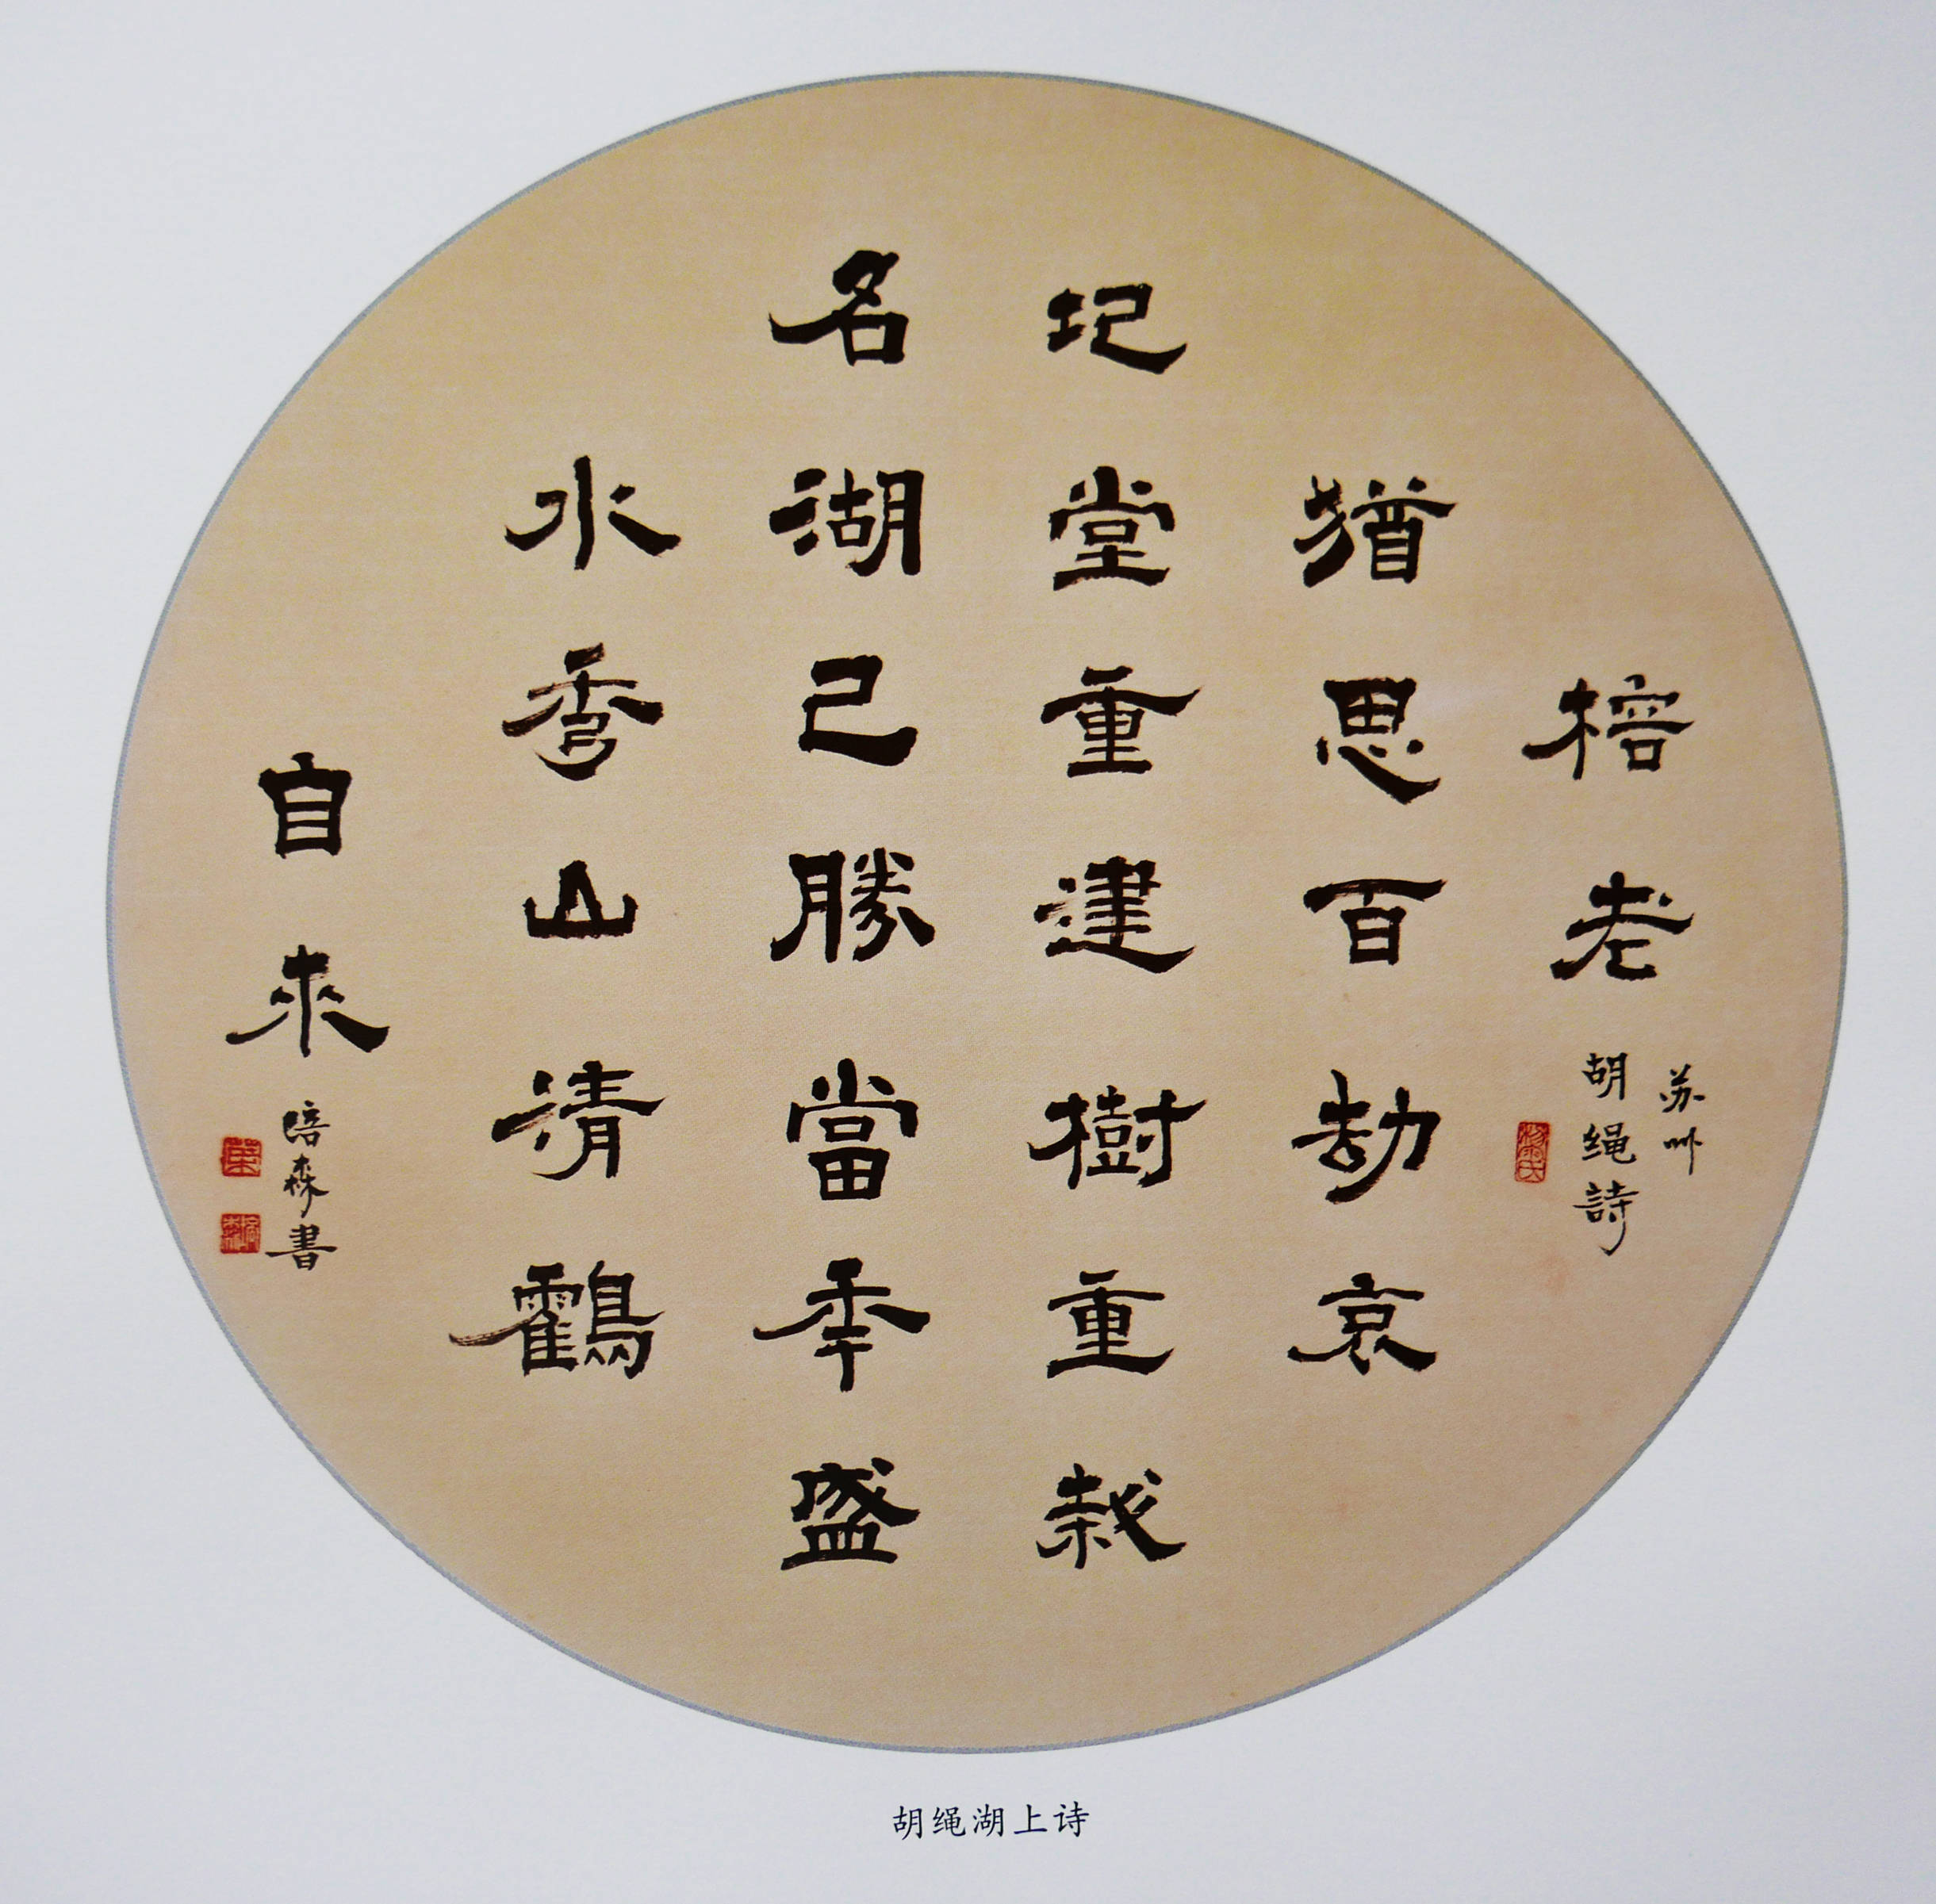 榕老
苏州
胡绳詩
猶思百劫哀
圮堂重建樹重栽
名湖已勝當年盛
水秀山清鶴
自來
培森書
胡绳湖上诗